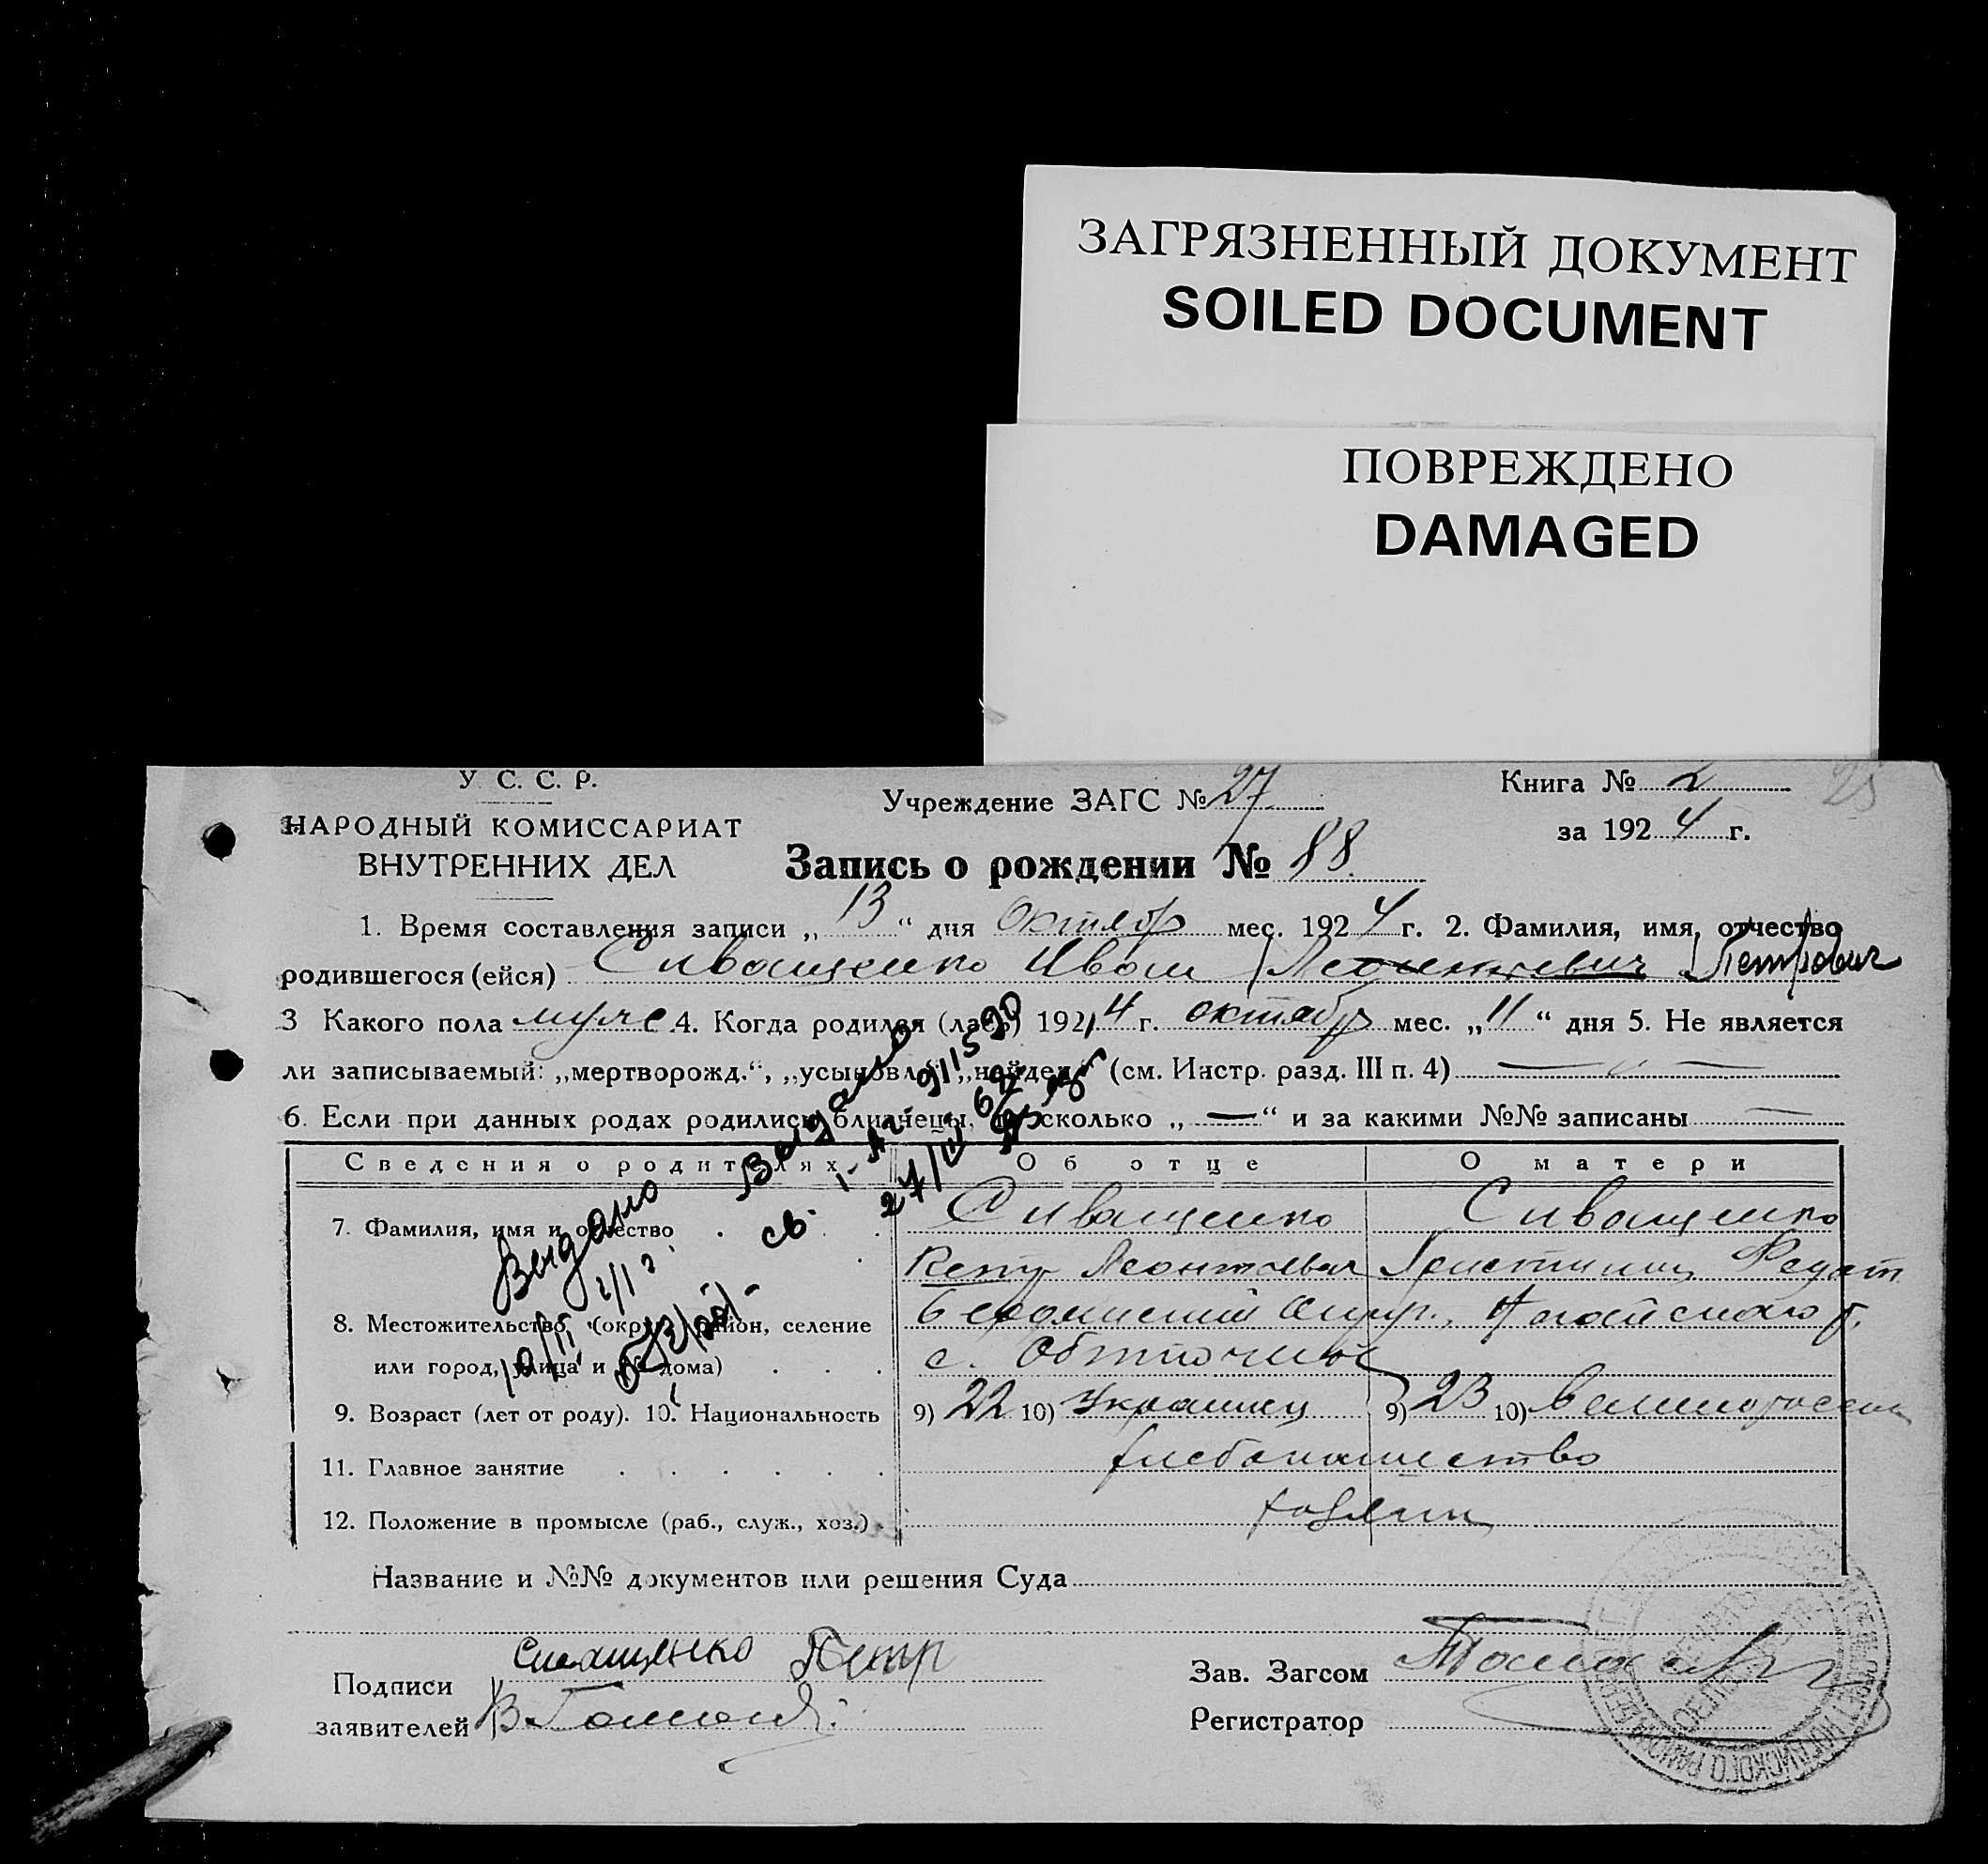 ЗАГРЯЗНЕННЫЙ ДОКУМЕНТ
SOILED DOCUMENT
ПОВРЕЖДЕНО
DAMAGED
У. С. С. Р.
НАРОДНЫЙ КОМИССАРИАТ
ВНУТРЕННИХ ДЕЛ
Учреждение ЗАГС № 27
Книга № 2
25
за 1924 г.
Запись о рождении № 88.
1. Время составления записи „ 13 “ дня октябр мес. 1924 г. 2. Фамилия, имя, отчество
родившегося (ейся) Сиващенко Иван Леонтьевич Петрович
3 Какого пола муже. 4. Когда родился (лась) 1924 г. октябр мес. „ 11 “ дня 5. Не является
ли записываемый: „мертворожд.“, „усыновл.“, „найден“ (см. Инстр. разд. III п. 4) — „ —
6. Если при данных родах родились близнецы, то сколько „ — “ и за какими №№ записаны —
Выдано
Выдано
св.
Сведения о родителях
Об отце
О матери
7. Фамилия, имя и отчество
Сиващенко
Сиващенко
Петр Леонтьевич
Христиния Федот
8. Местожительство (округ, район, селение
или город, улица и № дома)
Бердянский округ., Ногайского р.
с. Обиточное
9. Возраст (лет от роду). 10. Национальность
9) 22 10) Украинец
9) 23 10) великоросска
11. Главное занятие
хлебопашество
12. Положение в промысле (раб., служ., хоз.)
хозяин
Название и №№ документов или решения Суда
Подписи
заявителей
Сиващенко Петр
Зав. Загсом
Регистратор